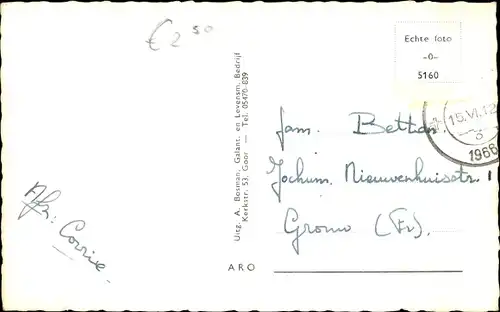 € 2 50
Echte foto
-0-
5160
15.VI.12
1966
Uitg. A. Bosman, Galant. en Levensm. Bedrijf
Kerkstr. 53, Goor — Tel. 05470-839
Fam. Bethan
Jochum. Nieuwenhuisstr. 1
Grouw (Fr).
Afz: Corrie.
ARO